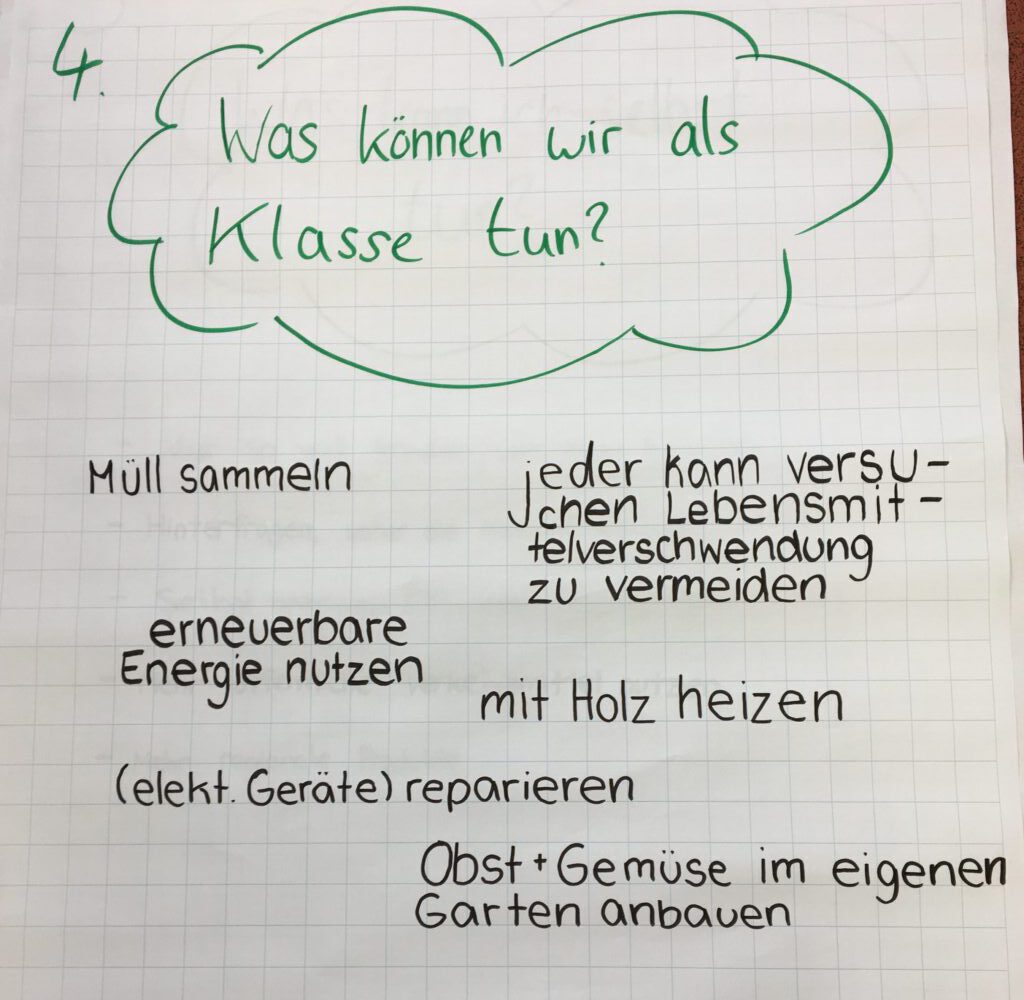 4.
Was können wir als
Klasse tun?
Müll sammeln
jeder kann versu-
chen Lebensmit-
telverschwendung
zu vermeiden
erneuerbare
Energie nutzen
mit Holz heizen
(elekt. Geräte) reparieren
Obst + Gemüse im eigenen
Garten anbauen